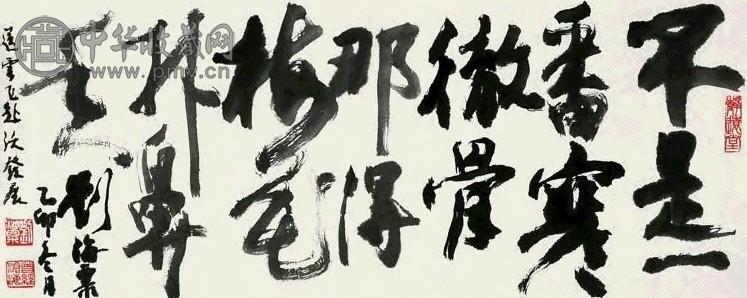 不是一
番寒
徹骨
那得
梅花
扑鼻
香
劉海粟
乙卯
中华收藏网
www.pmv.cn